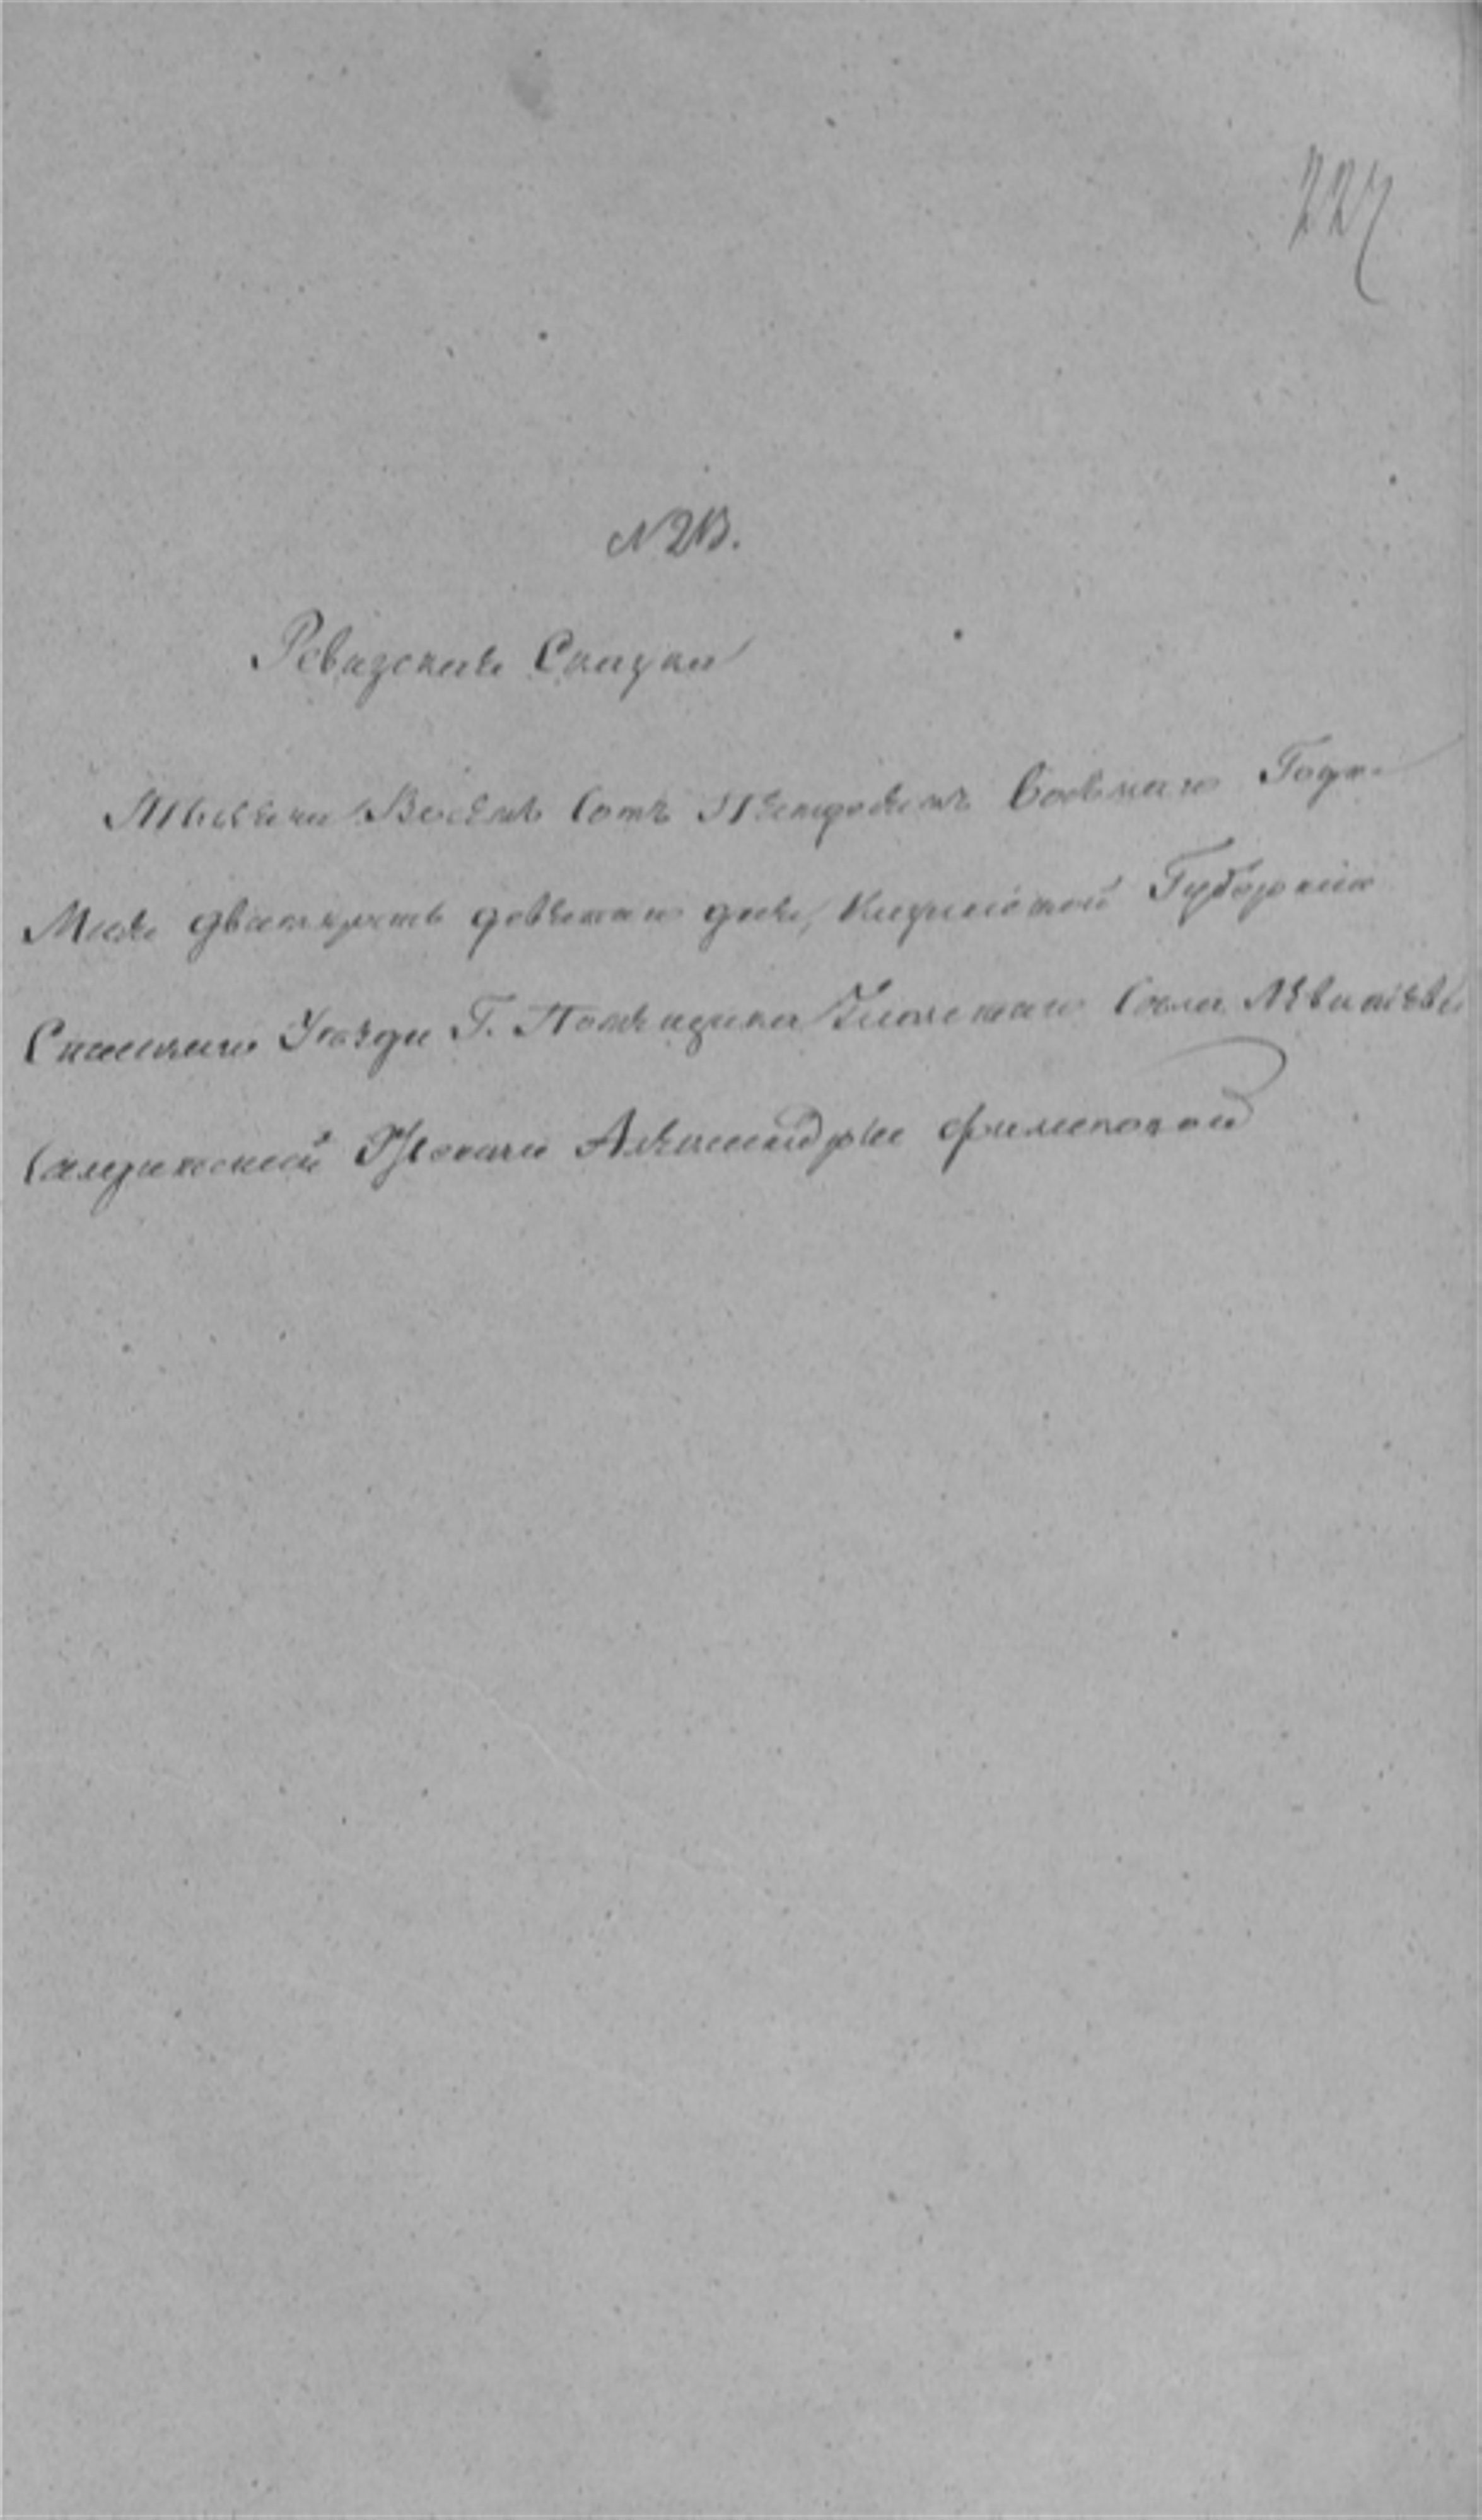 227
N 28.
Ревизская Сказка
Тысяча Восемь Сотъ Пятдесятъ Восьмаго Года
Маія двадцать девятаго дня, Казанской Губерніи
Спаскаго Уезда Г. Помещика Села
Солдатской Жены Александры Филиповой